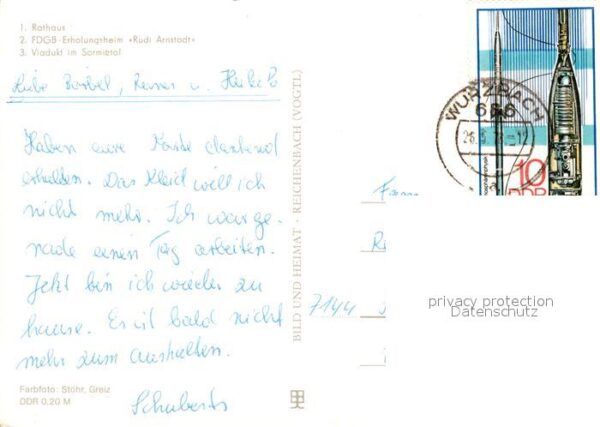 1. Rathaus
2. FDGB-Erholungsheim »Rudi Arnstadt«
3. Viadukt im Sormitztal
Liebe Bärbel, Reiner u. Heike
Haben eure Karte dankend
erhalten. Das Kleid will ich
nicht mehr. Ich war ge-
rade einen Tag arbeiten.
Jetzt bin ich wieder zu
hause. Es ist bald nicht
mehr zum aushalten.
Schuberts
Farbfoto: Stöhr, Greiz
DDR 0,20 M
BILD UND HEIMAT · REICHENBACH (VOGTL)
WURZBACH
656
10
DDR
Fam
7144
privacy protection
Datenschutz